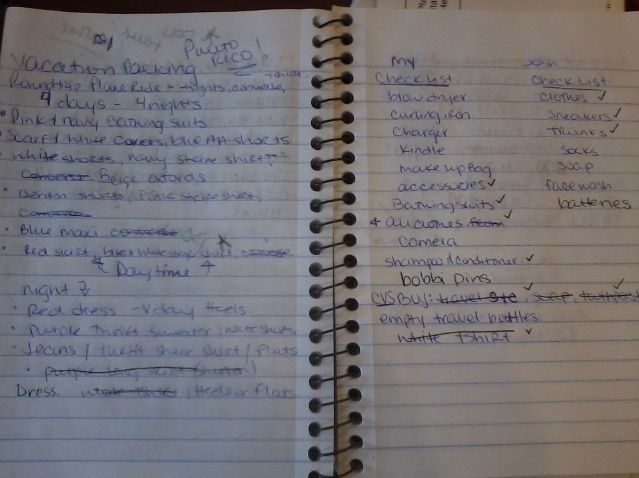 Vacation Packing
PUERTO
RICO!
Roundtrip Plane Ride - tights, converse,
4 days - 4 nights
• Pink & navy Bathing suits
• Scarf / white covers, blue AA shorts
• white shorts, navy stripe shirt,
converse Beige oxfords
• Denim shorts, Pink stripe shirt,
converse
• Blue maxi converse
• Red skirt,
Daytime
night
• Red dress - Vday Heels
• purple thrift sweater
• Jeans / thrift sheer shirt / flats
• purple long skirt
Dress. / Heels or flats
My
Check List
blow dryer
curling iron
Charger
Kindle
make up Bag
accessories ✓
Bathing suits ✓
all clothes from ✓
camera
shampoo / conditioner ✓
bobba pins
CVS Buy: travel size, soap, toothpaste ✓
empty travel bottles
white tshirt ✓
Josh
check list
clothes ✓
sneakers ✓
Trunks ✓
socks
soap
facewash
batteries